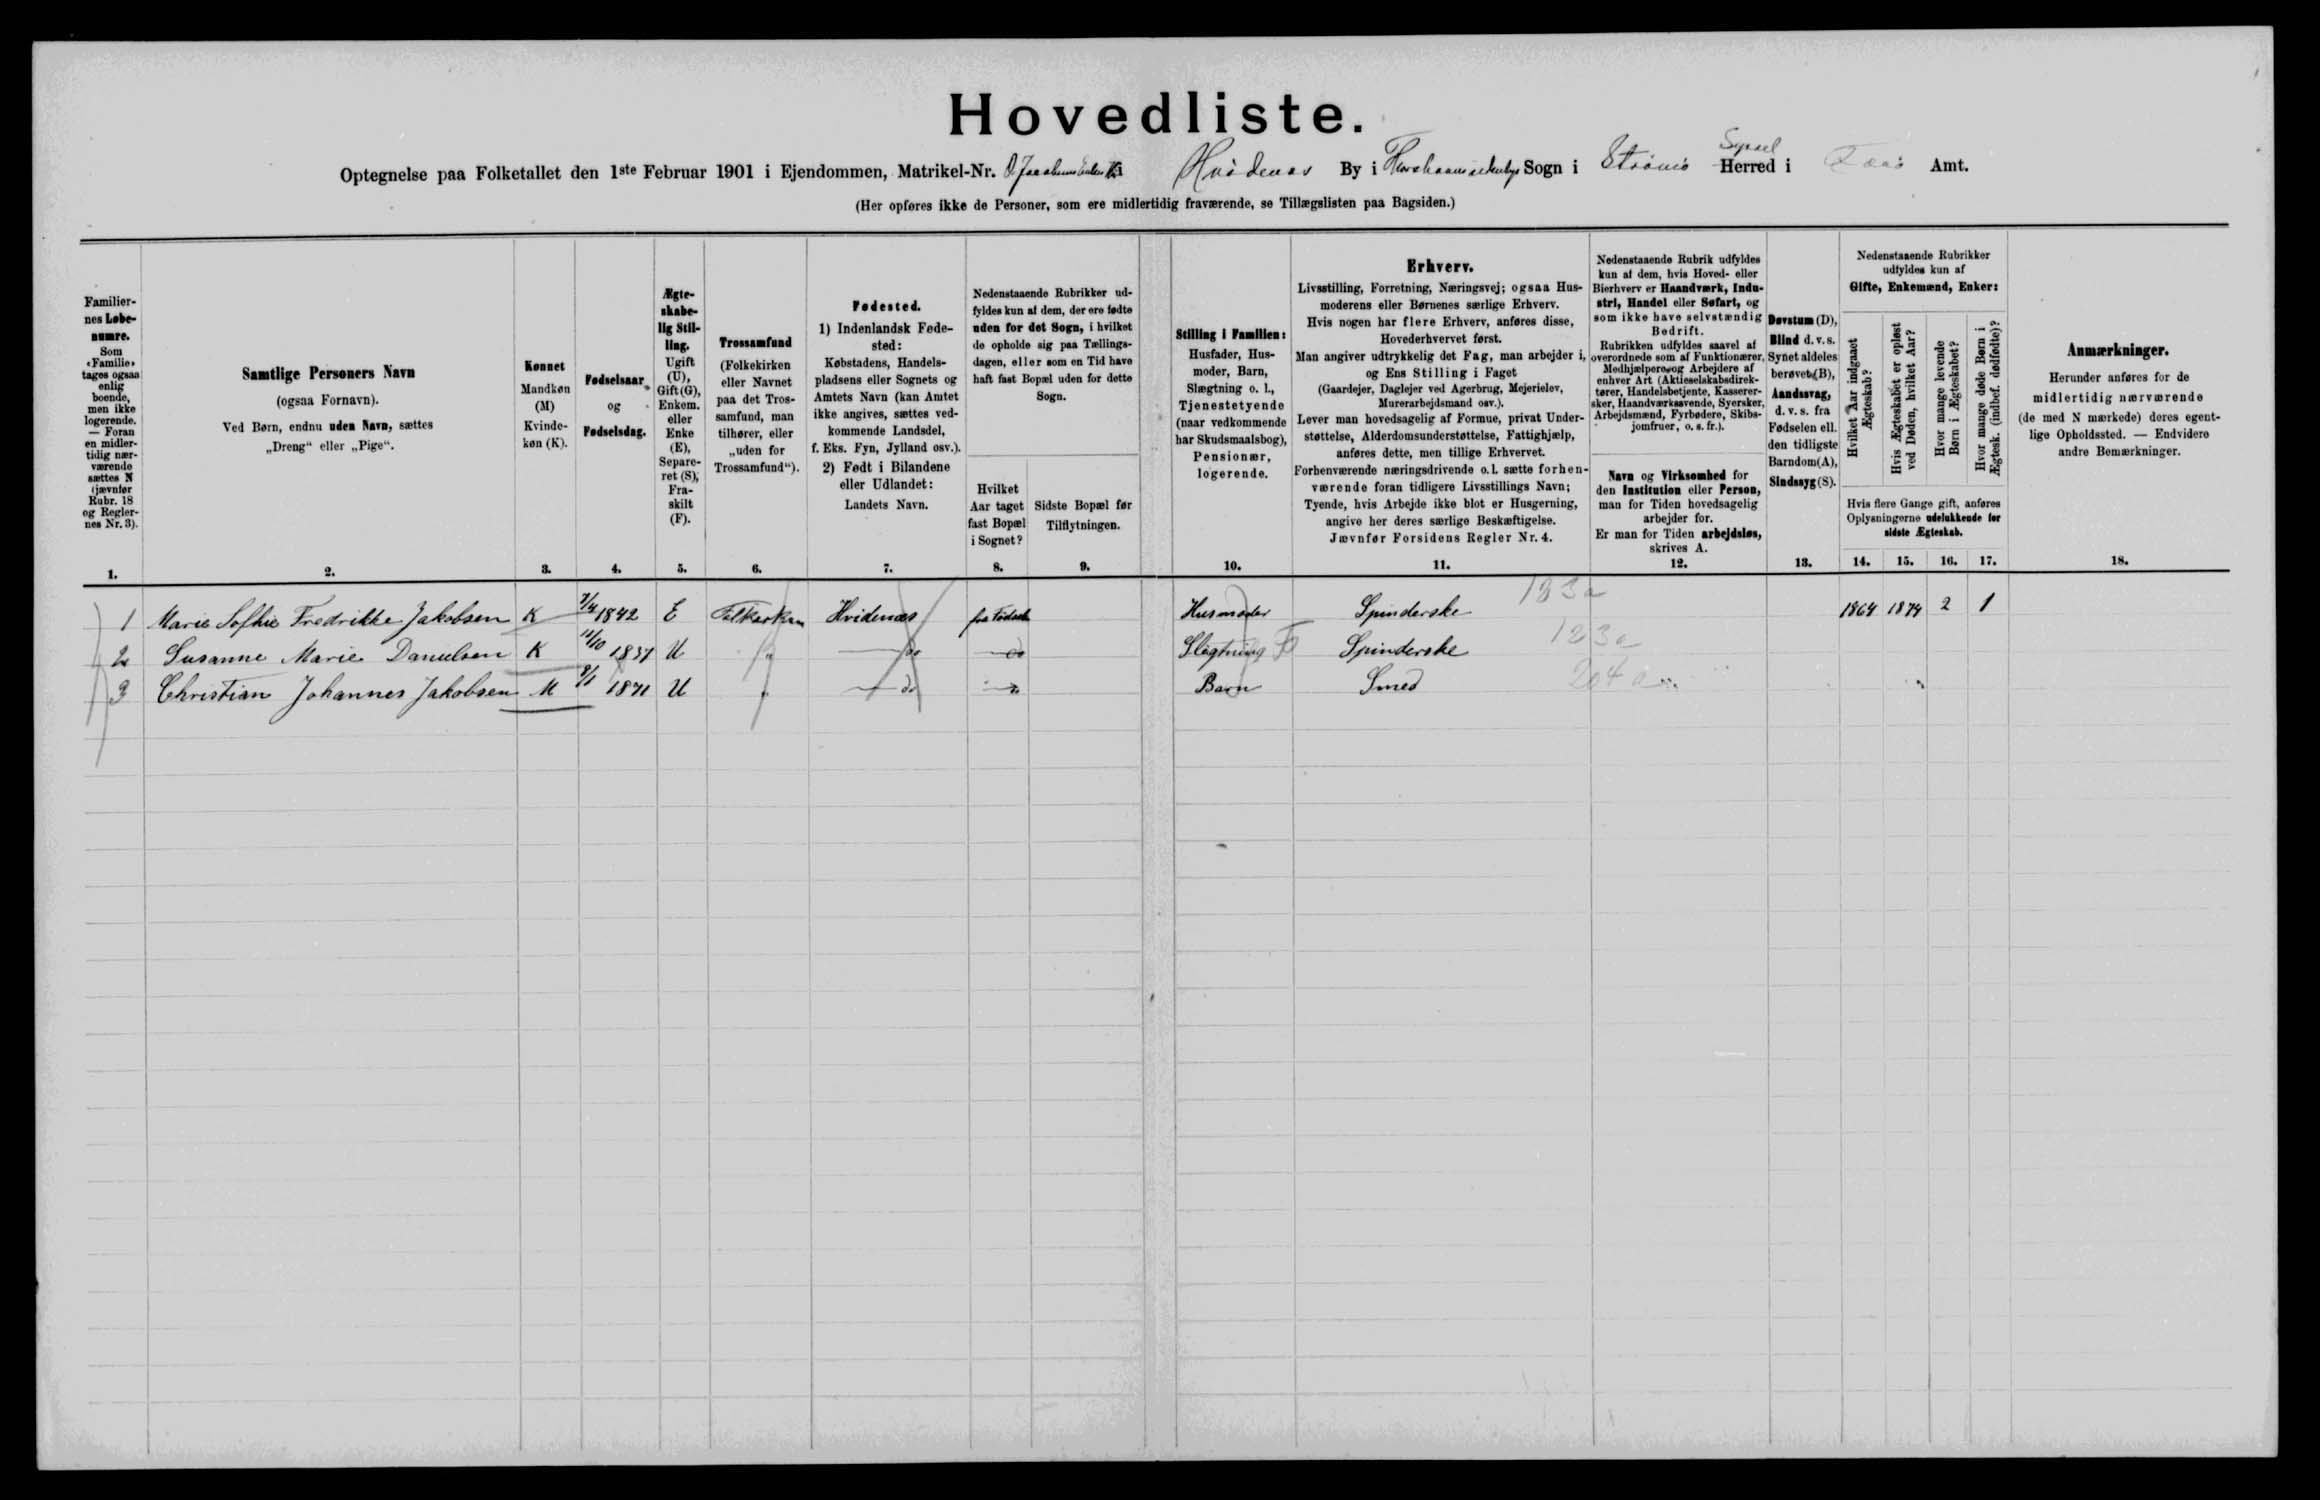 Hovedliste.
Optegnelse paa Folketallet den 1ste Februar 1901 i Ejendommen, Matrikel-Nr. i Hvidenæs By i Sogn i Strømø Herred Syssel i Færø Amt.
(Her opføres ikke de Personer, som ere midlertidig fraværende, se Tillægslisten paa Bagsiden.)
Familier-
nes Løbe-
numre.
Som
«Familie»
tages ogsaa
enlig
boende,
men ikke
logerende.
— Foran
en midler-
tidig nær-
værende
sættes N
(jævnfør
Rubr. 18
og Regler-
nes Nr. 3).
1.
Samtlige Personers Navn
(ogsaa Fornavn).
Ved Børn, endnu uden Navn, sættes
„Dreng“ eller „Pige“.
2.
Kønnet
Mandkøn
(M)
Kvinde-
køn (K).
3.
Fødselsaar
og
Fødselsdag.
4.
Ægte-
skabe-
lig Stil-
ling.
Ugift
(U),
Gift (G),
Enkem.
eller
Enke
(E),
Separe-
ret (S),
Fra-
skilt
(F).
5.
Trossamfund
(Folkekirken
eller Navnet
paa det Tros-
samfund, man
tilhører, eller
„uden for
Trossamfund“).
6.
Fødested.
1) Indenlandsk Føde-
sted:
Købstadens, Handels-
pladsens eller Sognets og
Amtets Navn (kan Amtet
ikke angives, sættes ved-
kommende Landsdel,
f. Eks. Fyn, Jylland osv.).
2) Født i Bilandene
eller Udlandet:
Landets Navn.
7.
Nedenstaaende Rubrikker ud-
fyldes kun af dem, der ere fødte
uden for det Sogn, i hvilket
de opholde sig paa Tællings-
dagen, eller som en Tid have
haft fast Bopæl uden for dette
Sogn.
Hvilket
Aar taget
fast Bopæl
i Sognet?
8.
Sidste Bopæl før
Tilflytningen.
9.
Stilling i Familien:
Husfader, Hus-
moder, Barn,
Slægtning o. l.,
Tjenestetyende
(naar vedkommende
har Skudsmaalsbog),
Pensionær,
logerende.
10.
Erhverv.
Livsstilling, Forretning, Næringsvej; ogsaa Hus-
moderens eller Børnenes særlige Erhverv.
Hvis nogen har flere Erhverv, anføres disse,
Hovederhvervet først.
Man angiver udtrykkelig det Fag, man arbejder i,
og Ens Stilling i Faget
(Gaardejer, Daglejer ved Agerbrug, Mejerielev,
Murerarbejdsmand osv.).
Lever man hovedsagelig af Formue, privat Under-
støttelse, Alderdomsunderstøttelse, Fattighjælp,
anføres dette, men tillige Erhvervet.
Forhenværende næringsdrivende o. l. sætte forhen-
værende foran tidligere Livsstillings Navn;
Tyende, hvis Arbejde ikke blot er Husgerning,
angive her deres særlige Beskæftigelse.
Jævnfør Forsidens Regler Nr. 4.
11.
Nedenstaaende Rubrik udfyldes
kun af dem, hvis Hoved- eller
Bierhverv er Haandværk, Indu-
stri, Handel eller Søfart, og
som ikke have selvstændig
Bedrift.
Rubrikken udfyldes saavel af
overordnede som af Funktionærer,
Medhjælpere og Arbejdere af
enhver Art (Aktieselskabsdirek-
tører, Handelsbetjente, Kasserer-
sker, Haandværkssvende, Syersker,
Arbejdsmænd, Fyrbødere, Skibs-
jomfruer, o. s. fr.).
Navn og Virksomhed for
den Institution eller Person,
man for Tiden hovedsagelig
arbejder for.
Er man for Tiden arbejdsløs,
skrives A.
12.
Døvstum (D),
Blind d. v. s.
Synet aldeles
berøvet (B),
Aandssvag,
d. v. s. fra
Fødselen ell.
den tidligste
Barndom (A),
Sindssyg (S).
13.
Nedenstaaende Rubrikker
udfyldes kun af
Gifte, Enkemænd, Enker:
Hvilket Aar indgaaet
Ægteskab?
Hvis Ægteskabet er opløst
ved Døden, hvilket Aar?
Hvor mange levende
Børn i Ægteskabet?
Hvor mange døde Børn i
Ægtesk. (indbef. dødfødte)?
Hvis flere Gange gift, anføres
Oplysningerne udelukkende for
sidste Ægteskab.
14. 15. 16. 17.
Anmærkninger.
Herunder anføres for de
midlertidig nærværende
(de med N mærkede) deres egent-
lige Opholdssted. — Endvidere
andre Bemærkninger.
18.
1 Marie Sofhie Fredrikke Jakobsen K 7/4 1842 E Folkerken Hvidenæs fra Fødsele Husmoder Spinderske 123a 1864 1874 2 1
2 Susanne Marie Danielsen K 11/10 1837 U " do do Slægtning Spinderske 123a
3 Christian Johannes Jakobsen M 8/1 1871 U " do " Barn Smed 204a